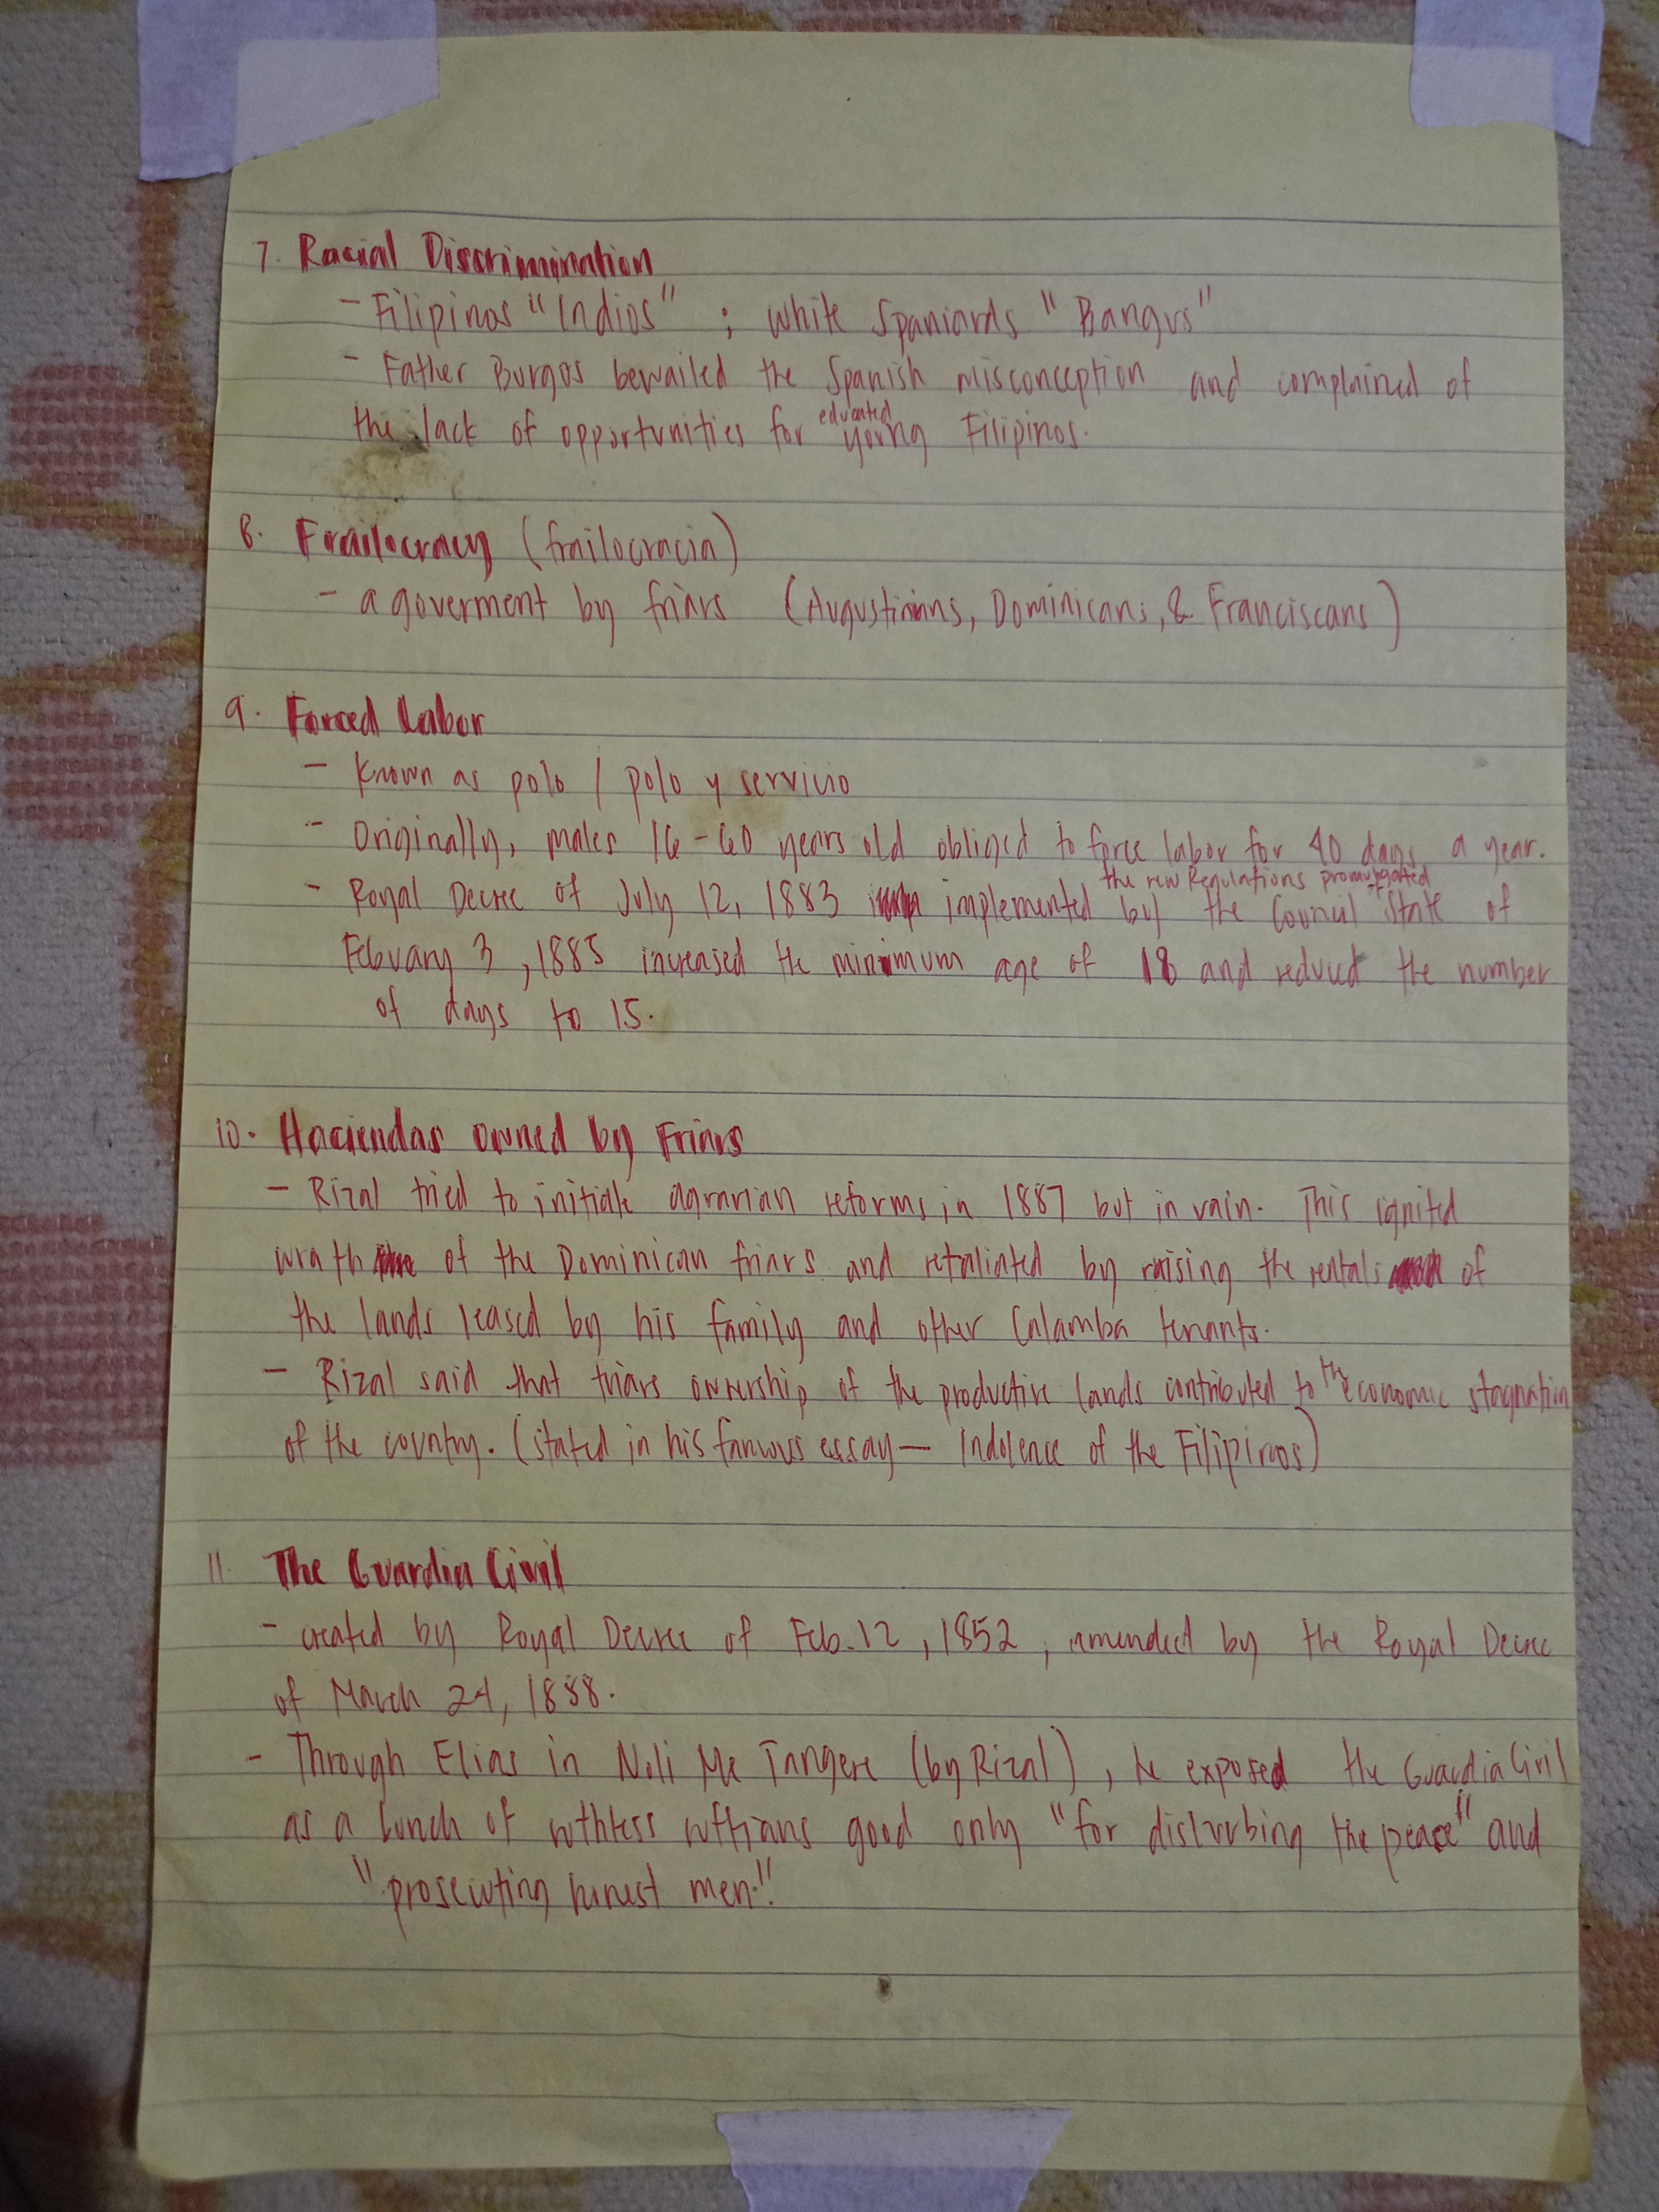 7. Racial Discrimination
- Filipinos "Indios" ; White Spaniards "Bangus"
- Father Burgos bewailed the Spanish misconception and complained of
the lack of opportunities for educated young Filipinos.
8. Frailocracy (frailocracia)
- a goverment by friars (Augustinians, Dominicans, & Franciscans)
9. Forced Labor
- Known as polo / polo y servicio
- Originally, males 16-60 years old obliged to force labor for 40 days a year.
the new Regulations promulgated
- Royal Decree of July 12, 1883 implemented by the Council State of
February 3, 1885 increased the minimum age of 18 and reduced the number
of days to 15.
10. Haciendas owned by Friars
- Rizal tried to initiate agrarian reforms in 1887 but in vain. This ignited
wrath of the Dominican friars and retaliated by raising the rentals of
the lands leased by his family and other Calamba tenants.
- Rizal said that friars ownership of the productive lands contributed to the economic stagnation
of the country. (stated in his famous essay — Indolence of the Filipinos)
11. The Guardia Civil
- created by Royal Decree of Feb. 12, 1852, amended by the Royal Decree
of March 24, 1888.
- Through Elias in Noli Me Tangere (by Rizal), he exposed the Guardia Civil
as a bunch of ruthless ruffians good only "for disturbing the peace" and
"prosecuting honest men."